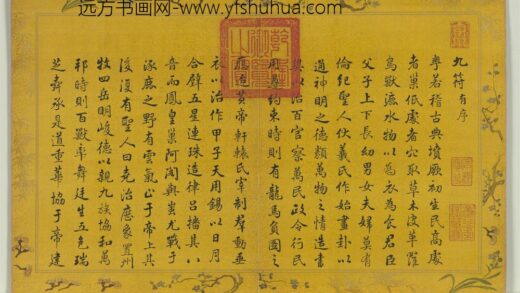 远方书画网-www.yfshuhua.com
九符有序
粤若稽古典墳厥初生民高處
者巢低處者穴取草木皮革羅
鳥獸
水物以為衣為食君臣
父子上下長幼男女夫婦莫有
倫紀聖人伏羲氏作始畫卦以
通神明之德類萬物之情造書
契以治百官察萬民政令行民
用遵約東時則有龍馬負圖之
應迨黃帝軒轅氏宰制羣動垂
衣以治作甲子天用錫以日月
合璧五星連珠造律呂播其八
音而鳳皇巢阿閣與蚩尤戰于
涿鹿之野有雲氣止于帝上其
後復有聖人曰堯治應象置州
牧四岳明峻德以親九族協和萬
邦時則百獸率舞廷生五色瑞
芝舜承是道重華協于帝建